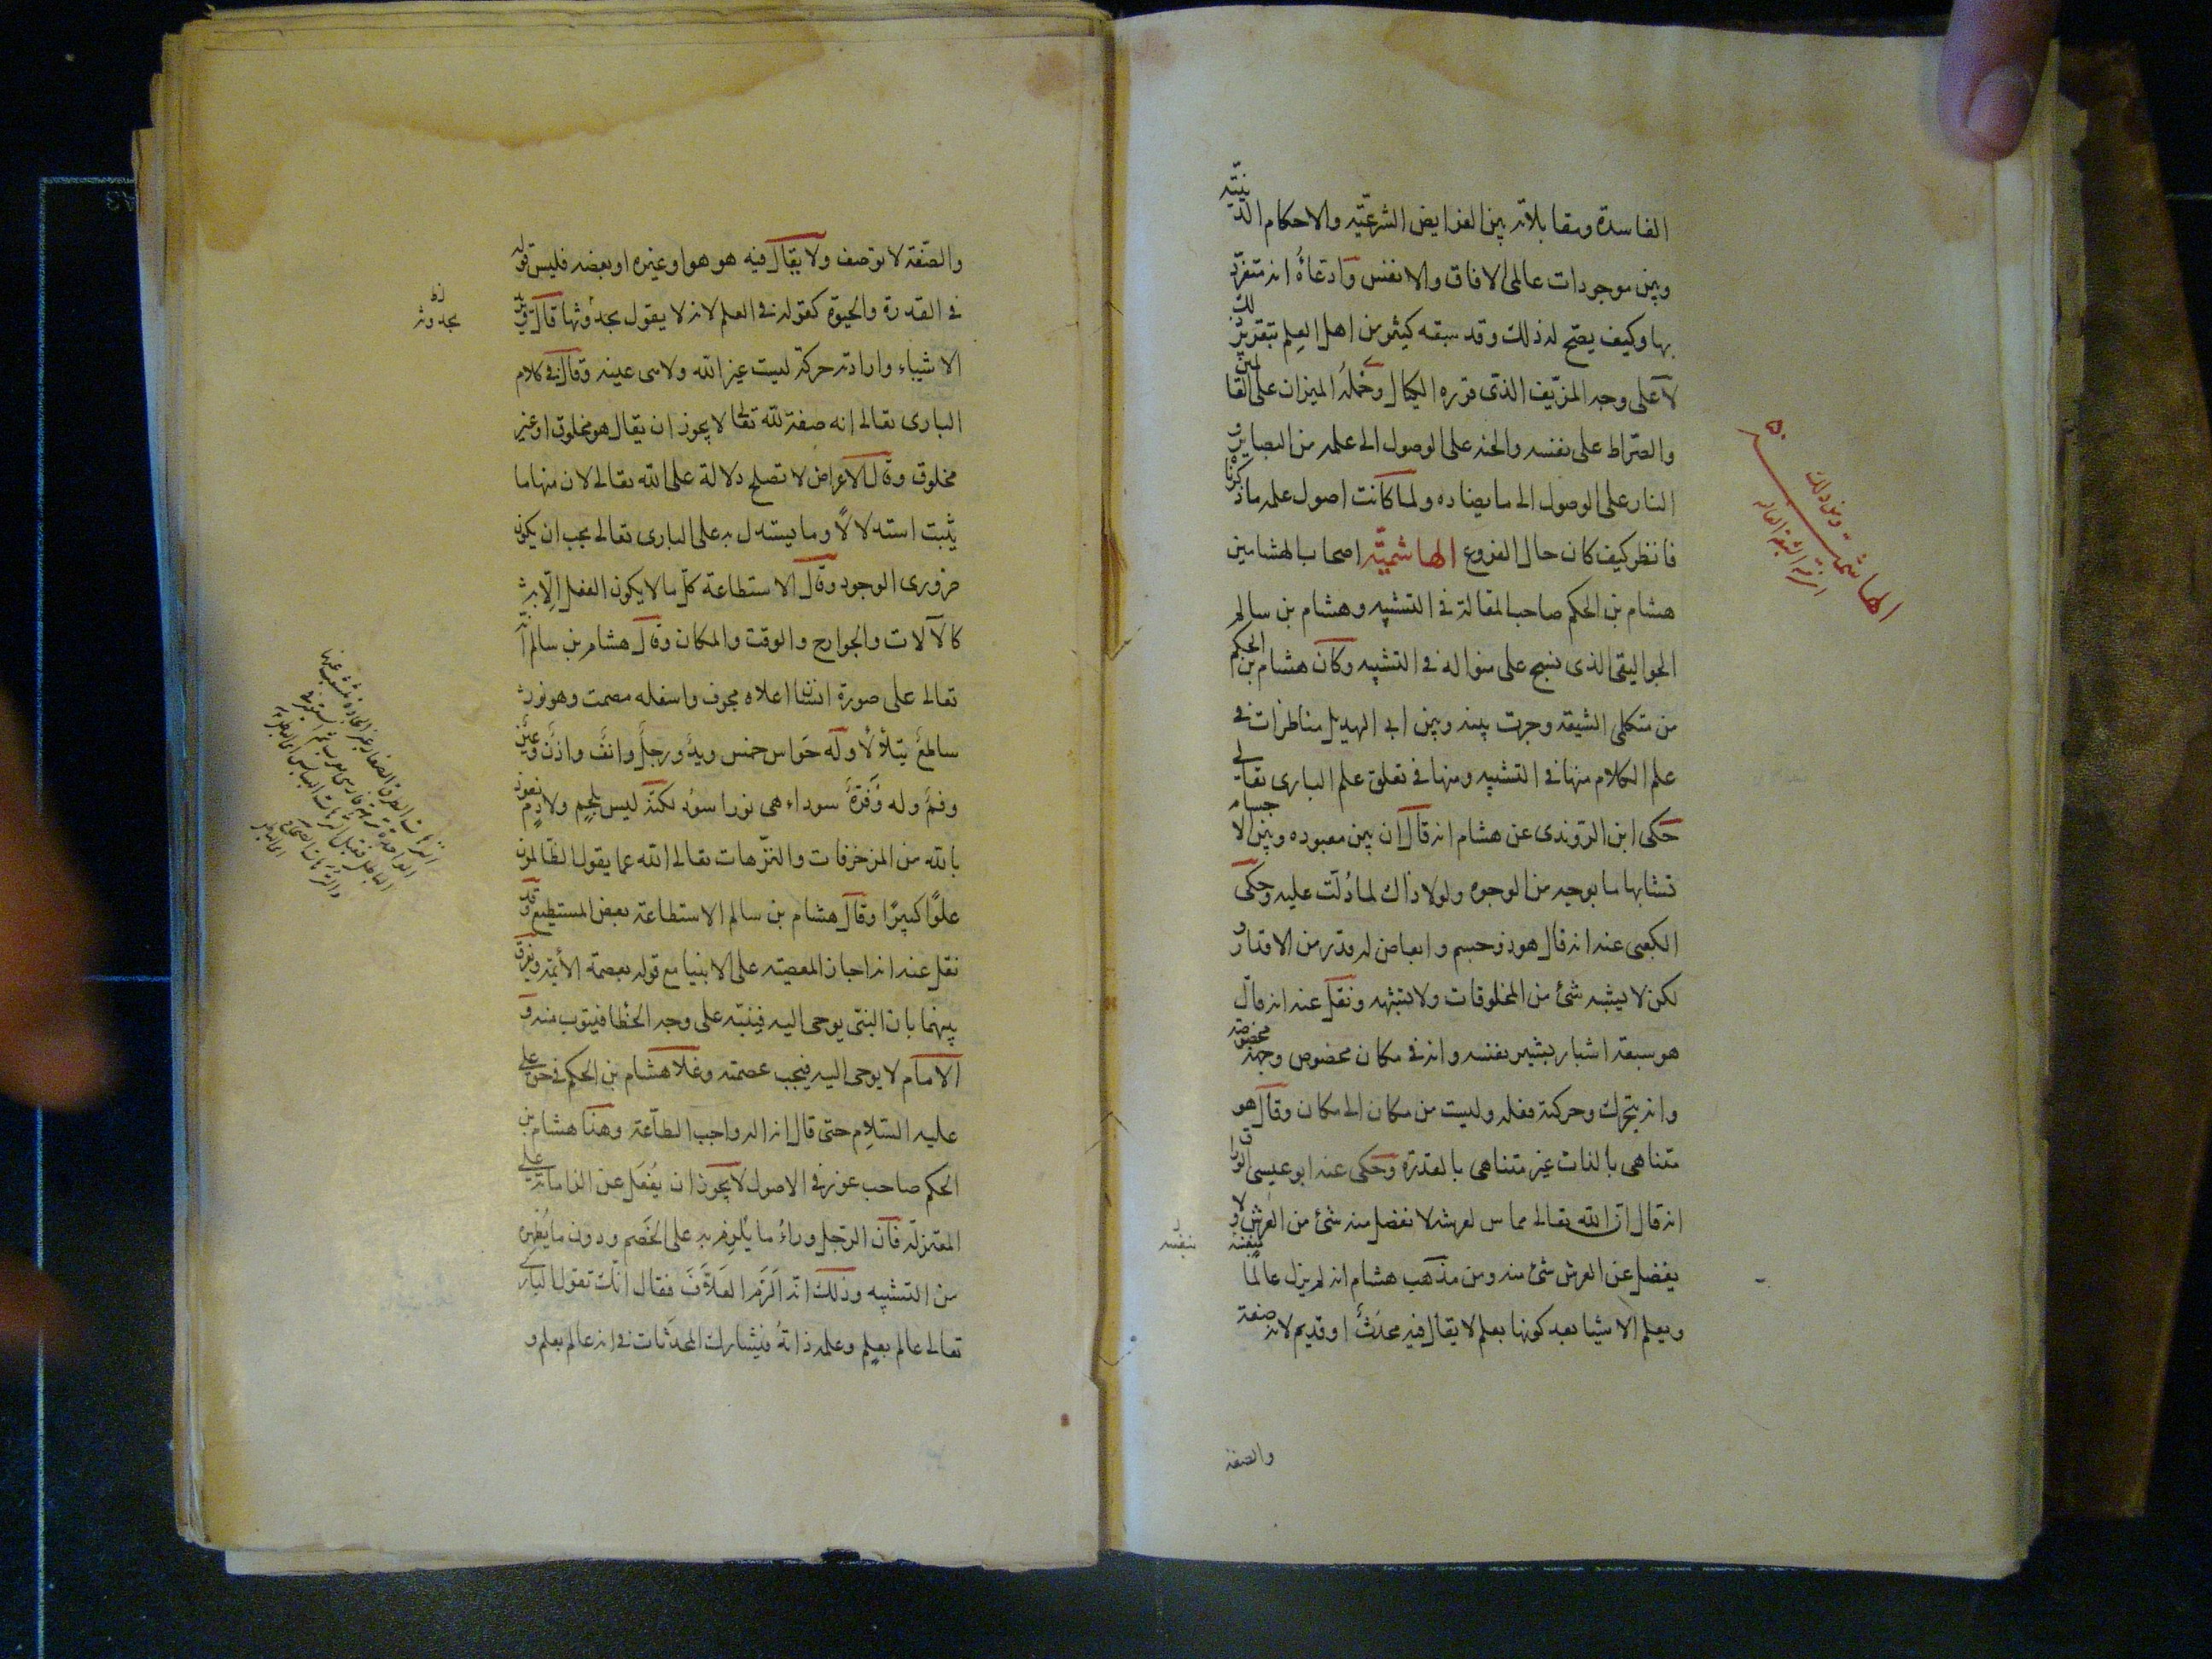 الفاسدة ومقابلاته بين الفرايض الشرعيّة والاحكام الدينيّة
وبين موجودات عالمى الافاق والانفس وادعاؤه انه متفرّد
بها وكيف يصح له ذلك وقد سبقه كثير من اهل العلم بتقرير ذلك
لا على وجه المزيّف الذى قرره الكيال وحمله الميزان على العالمين
والصّراط على نفسه والجنه على الوصول الى علمه من البصاير و
النار على الوصول الى ما يضاده ولما كانت اصول علمه ما ذكرناه
فانظر كيف كان حال الفروع الهاشميّه اصحاب الهشامين
هشام بن الحكم صاحب المقالة فى التشبيه وهشام بن سالم
الجواليقى الذى نسج على منواله فى التشبيه وكان هشام بن الحكم
من متكلمى الشيعه وجرت بينه وبين ابى الهذيل مناظرات فى
علم الكلام منها فى التشبيه ومنها فى تعلق علم البارى تعالى
حكى ابن الروندى عن هشام انه قال ان بين معبوده وبين الاجسام
تشابها ما بوجه من الوجوه ولولا ذاك لما دلّت عليه وحكى
الكعبى عنه انه قال هو ذو جسم وابعاض له قدر من الاقدار و
لكن لا يشبه شئ من المخلوقات ولا يشبهه ونقل عنه انه قال
هو سبعة اشبار بشبر نفسه وانه فى مكان مخصوص وجهة مخصوصة
وانه يتحرك وحركته فعله وليست من مكان الى مكان وقال هو
متناهى بالذات غير متناهى بالقدرة وحكى عنه ابو عيسى الوراق
انه قال انّ الله تعالى مماس لعرشه لا يفضل منه شئ من العرش ولا
يفضل عن العرش شئ منه ومن مذهب هشام انه لم يزل عالما بنفسه
ويعلم الاشيا بعد كونها بعلم لا يقال فيه محدث او قديم لانه صفة
والصفة
الهاشميّة
بنفسه
والصّفة لا توصف ولا يقال فيه هو هو او غيره او بعضه فليس قوله
فى القدرة والحيوة كقوله فى العلم لانه لا يقول بحدوثها قال ويريد
الاشياء وارادته حركة ليست غير الله ولا هى عينه وقال فى كلام
البارى تعالى انه صفة لله تعالى لا يجوز ان يقال هو مخلوق او غير
مخلوق وقال الاعراض لا تصلح دلالة على الله تعالى لان منها ما
يثبت استدلالاً وما يستدل به على البارى تعالى يجب ان يكون
ضرورى الوجود وقال الاستطاعة كلّ ما لا يكون الفعل الّا به
كالآلات والجوارح والوقت والمكان وقال هشام بن سالم انّه
تعالى على صورة انسان اعلاه مجوف واسفله مصمت وهو نور
ساطع يتلألأ وله حواس خمس ويد ورجل وانف واذن وعين
وفم وله وَفْرَةٌ سوداء هى نور اسود لكنّه ليس بلحم ولا دم نعوذ
بالله من المزخرفات والتزّهات تعالى الله عما يقول الظالمون
علوًّا كبيرًا وقال هشام بن سالم الاستطاعة بعض المستطيع وقد
نقل عنه انه اجاز المعصية على الانبيا مع قوله بعصمة الأئمة ويفرق
بينهما بان النبىّ يوحى اليه فينبّه على وجه الخطا فيتوب منه و
الامام لا يوحى اليه فيجب عصمته وغلا هشام بن الحكم فى حق على
عليه السّلام حتى قال انه اله واجب الطاعة وهذا هشام بن
الحكم صاحب غور فى الاصول لا يجوز ان يُغفَل عن الزاماته على
المعتزلة فان الرجل وراء ما يُلزم به على الخَصم ودون ما يُظهره
من التشبيه وذلك انّه الزم العَلّافَ فقال انّك تقول البارى
تعالى عالم بعلم وعلمه ذاته فيشارك المحدثات فى انه عالم بعلم و
بحدوثه